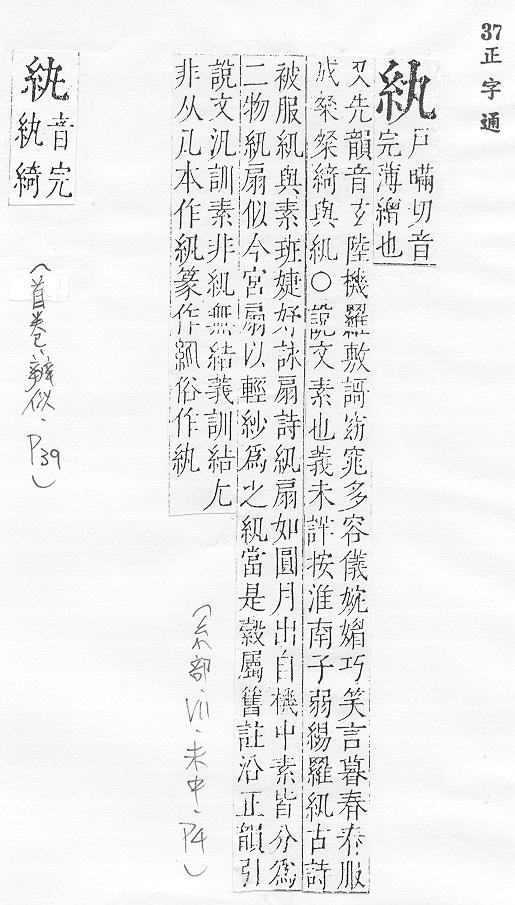 37正字通
紈
戶瞞切音
完薄繒也
又先韻音玄陸機羅敷謌窈窕多容儀婉媚巧笑言暮春春服
成粲粲綺與紈○說文素也義未詳按淮南子弱緆羅紈古詩
被服紈與素班婕妤詠扇詩紈扇如圓月出自機中素皆分爲
二物紈扇似今宮扇以輕紗爲之紈當是縠屬舊註沿正韻引
說文汎訓素非紈無結義訓結尢
非从本作紈篆作俗作紈
(糸部·未中·P4)
紈
音完
紈綺
(首卷·辯似·P39)